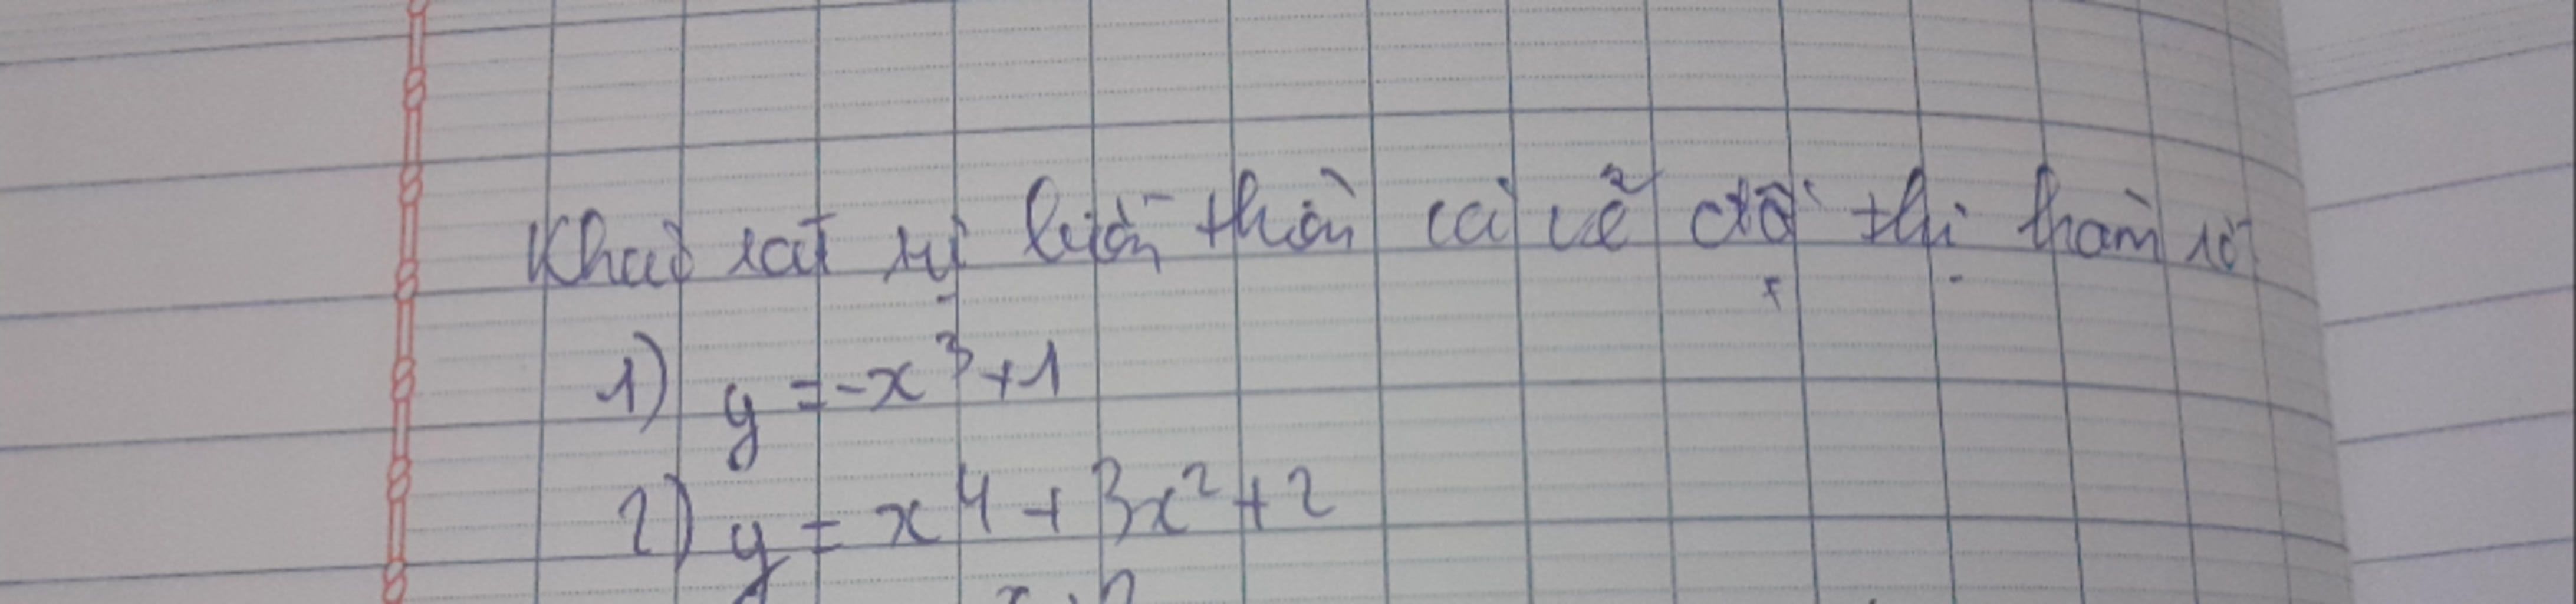 Khảo sát sự biến thiên và vẽ đồ thị hàm số
1) y = -x³+1
2) y = x⁴ + 3x² + 2